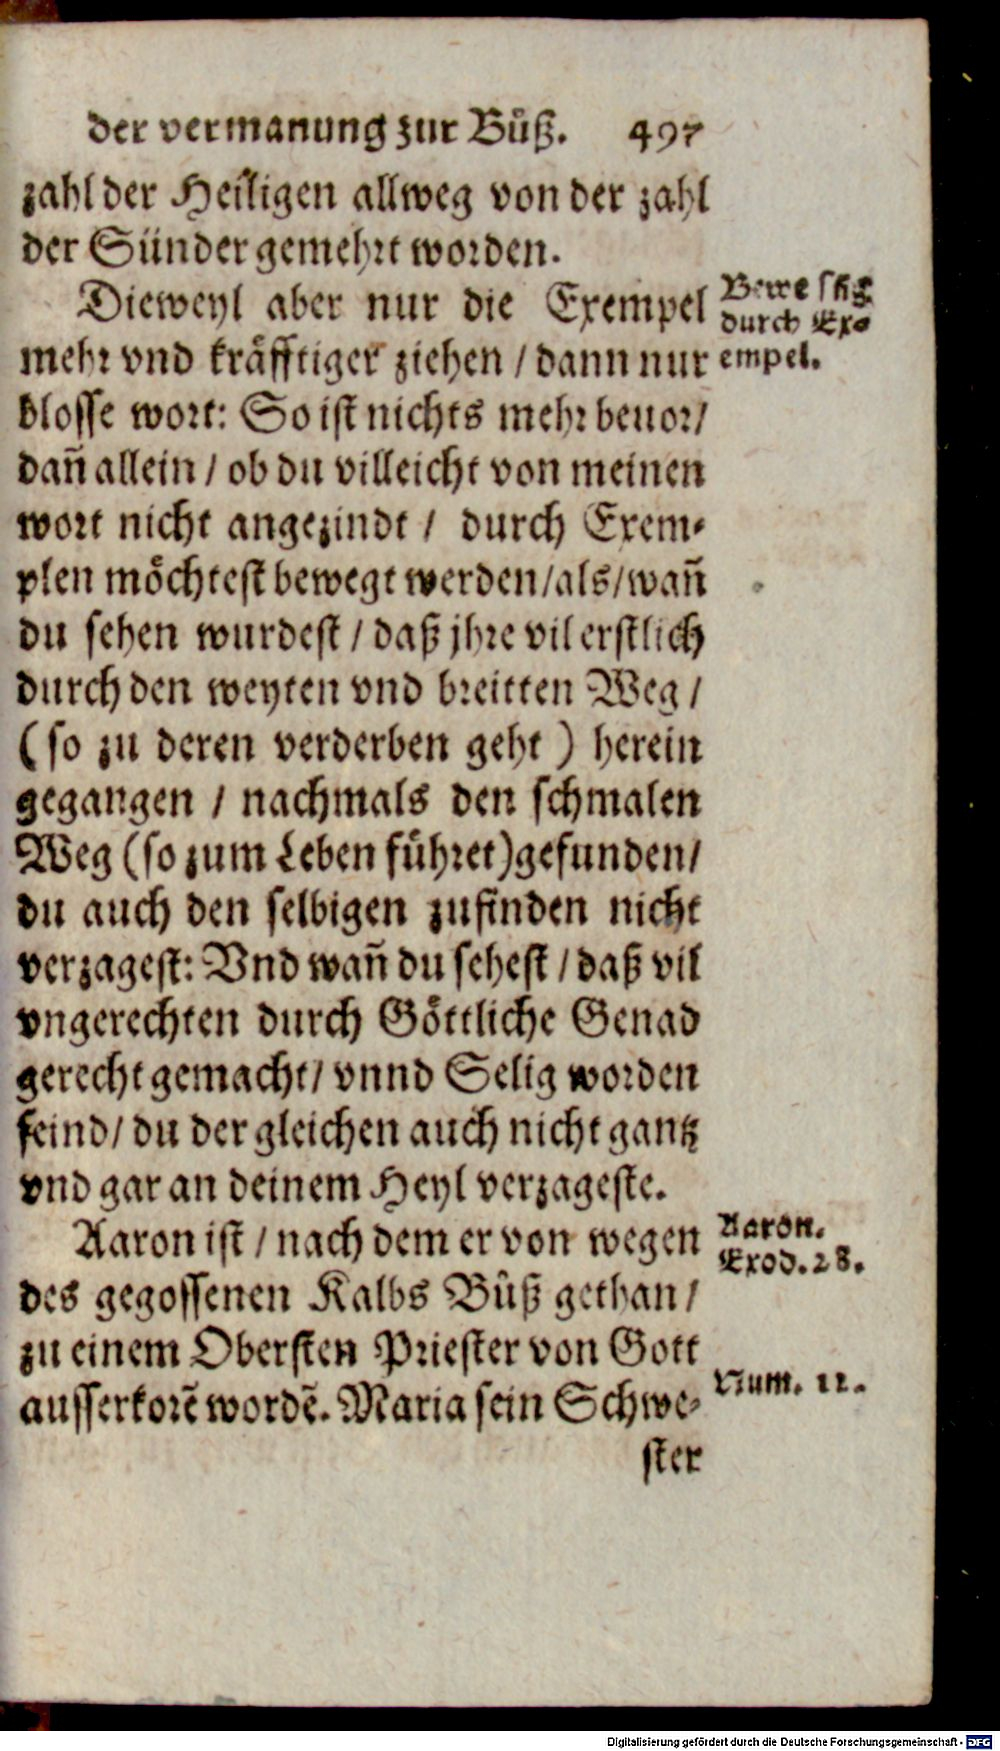 der vermanung zur Bůß. 497
zahl der Heiligen allweg von der zahl
der Sünder gemehrt worden.
Dieweyl aber nur die Exempel
mehr vnd kräfftiger ziehen / dann nur
blosse wort: So ist nichts mehr beuor /
dañ allein / ob du villeicht von meinen
wort nicht angezindt / durch Exem⸗
plen möchtest bewegt werden / als / wañ
du sehen wurdest / daß jhre vil erstlich
durch den weyten vnd breitten Weg /
( so zu deren verderben geht ) herein
gegangen / nachmals den schmalen
Weg (so zum Leben führet) gefunden /
du auch den selbigen zufinden nicht
verzagest: Vnd wañ du sehest / daß vil
vngerechten durch Göttliche Genad
gerecht gemacht / vnnd Selig worden
seind / du der gleichen auch nicht gantz
vnd gar an deinem Heyl verzageste.
Aaron ist / nach dem er von wegen
des gegossenen Kalbs Bůß gethan /
zu einem Obersten Priester von Gott
ausserkorē wordē. Maria sein Schwe⸗
ster
durch Ex⸗
empel.
Aaron.
Exod. 28.
Num. 12.
Digitalisierung gefördert durch die Deutsche Forschungsgemeinschaft - DFG